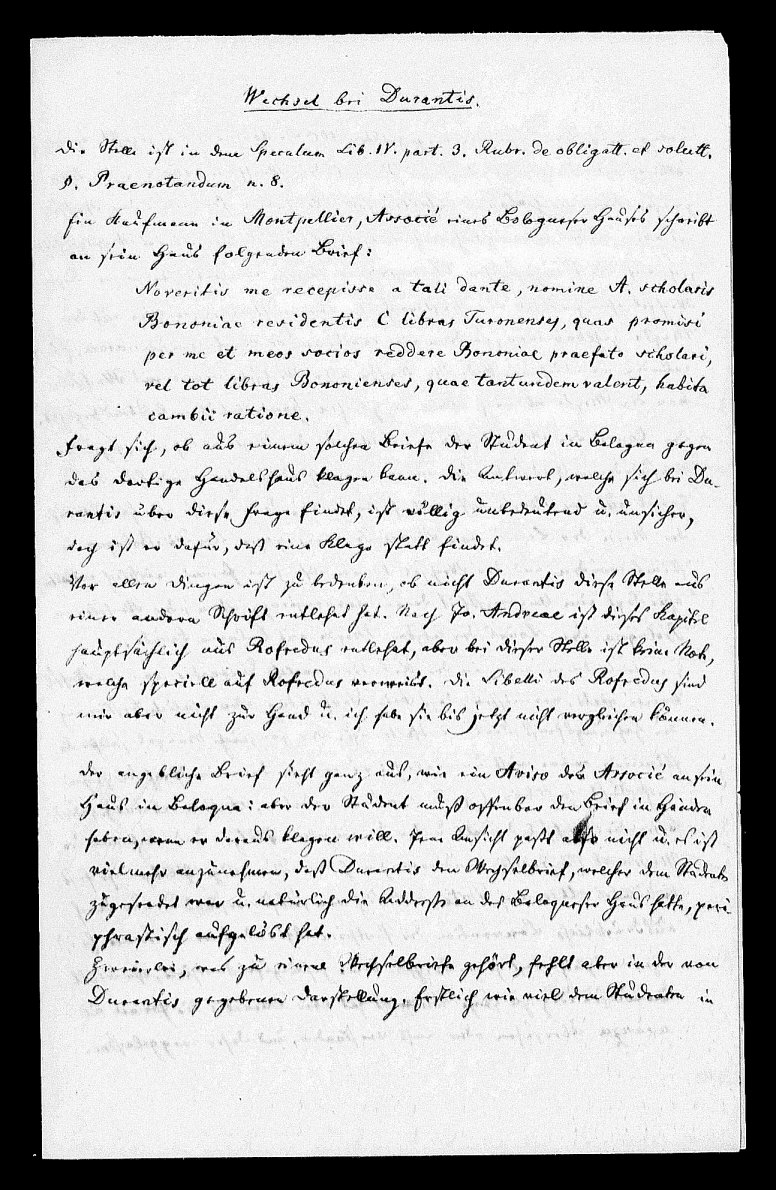 Wechsel bei Durantis.
Die Stelle ist in dem Speculum Lib. IV. part. 3. Rubr. de obligatt. et solutt.
§. Praenotandum n. 8.
Ein Kaufmann in Montpellier, Associé eines Bologneser Hauses schreibt
an sein Haus folgenden Brief:
Noveritis me recepisse a tali dante, nomine A. scholaris
Bononiae residentis C libras Turonenses, quas promisi
per me et meos socios reddere Bononiae praefato scholari,
vel tot libras Bononienses, quae tantundem valent, habita
cambii ratione.
Fragt sich, ob aus einem solchen Briefe der Student in Bologna gegen
das dortige Handelshaus klagen kann. Die Antwort, welche sich bei Du-
rantis über diese Frage findet, ist völlig unbedeutend u. unsicher,
doch ist er dafür, daß eine Klage statt findet.
Vor allen Dingen ist zu bedenken, ob nicht Durantis diese Stelle aus
einer andern Schrift entlehnt hat. Nach Jo. Andreae ist dieses Kapitel
hauptsächlich aus Rofredus entlehnt, aber bei dieser Stelle ist keine Note,
welche speciell auf Rofredus verweist. Die Libelli des Rofredus sind
mir aber nicht zur Hand u. ich habe sie bis jetzt nicht vergleichen können.
Der angebliche Brief sieht ganz aus, wie ein Aviso des Associé an sein
Haus in Bologna: aber der Student muß offenbar den Brief in Händen
haben, wenn er daraus klagen will. Jene Ansicht paßt also nicht u. es ist
vielmehr anzunehmen, daß Durantis den Wechselbrief, welcher dem Studenten
zugesendet war u. natürlich die Addresse an das Bologneser Haus hatte, peri-
phrastisch aufgelöst hat.
Zweierlei, was zu einem Wechselbriefe gehört, fehlt aber in der von
Durantis gegebenen Darstellung. Erstlich wie viel dem Studenten in